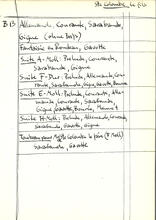 Ste Colombe, le fils
B.13 Allemande, Courante, Sarabande,
Gigue (ohne Bass)
Fantaisie en Rondeau, Gavotte
Suite A-Moll: Prelude, Courante,
Sarabande, Gigue
Suite F-Dur: Prelude, Allemande, Courante,
Sarabande, Gigue, Gavotte,
Suite E-Moll: Prelude, Courante, Allemande,
Courante, Sarabande,
Gigue, Gavotte,
Suite H-Moll: Prelude, Allemande, Courante,
Sarabande, Gigue, Gavotte
Tombeau pour Mr de Ste Colombe le père (E Moll)
Sarabande, Gavotte